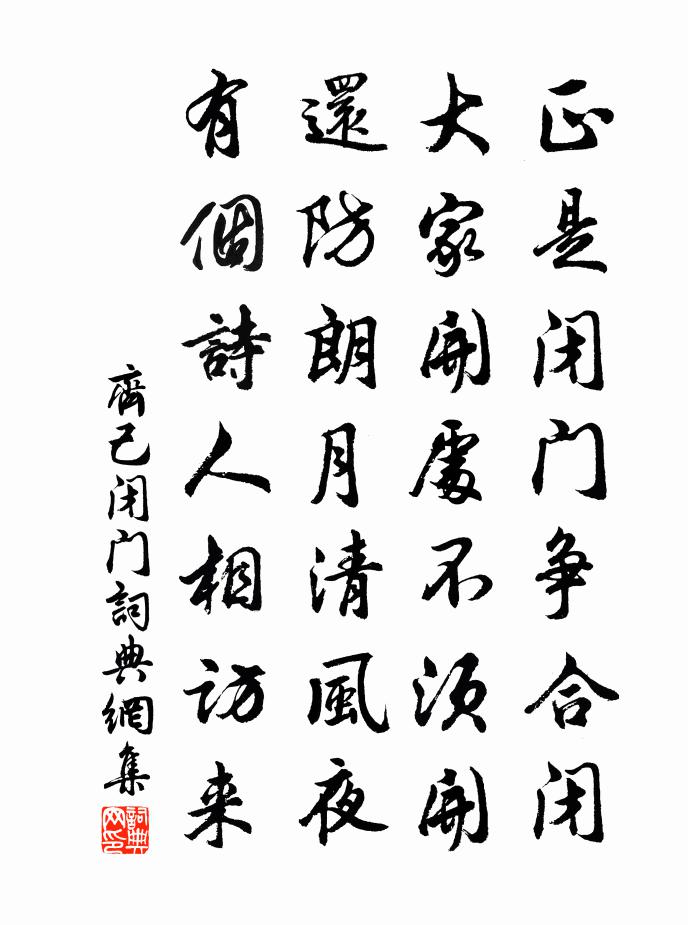 正是闭门争合闭
大家開處不須開
還防朗月清風夜
有個詩人相訪来
齊己闭门詞典網集
詞典网印